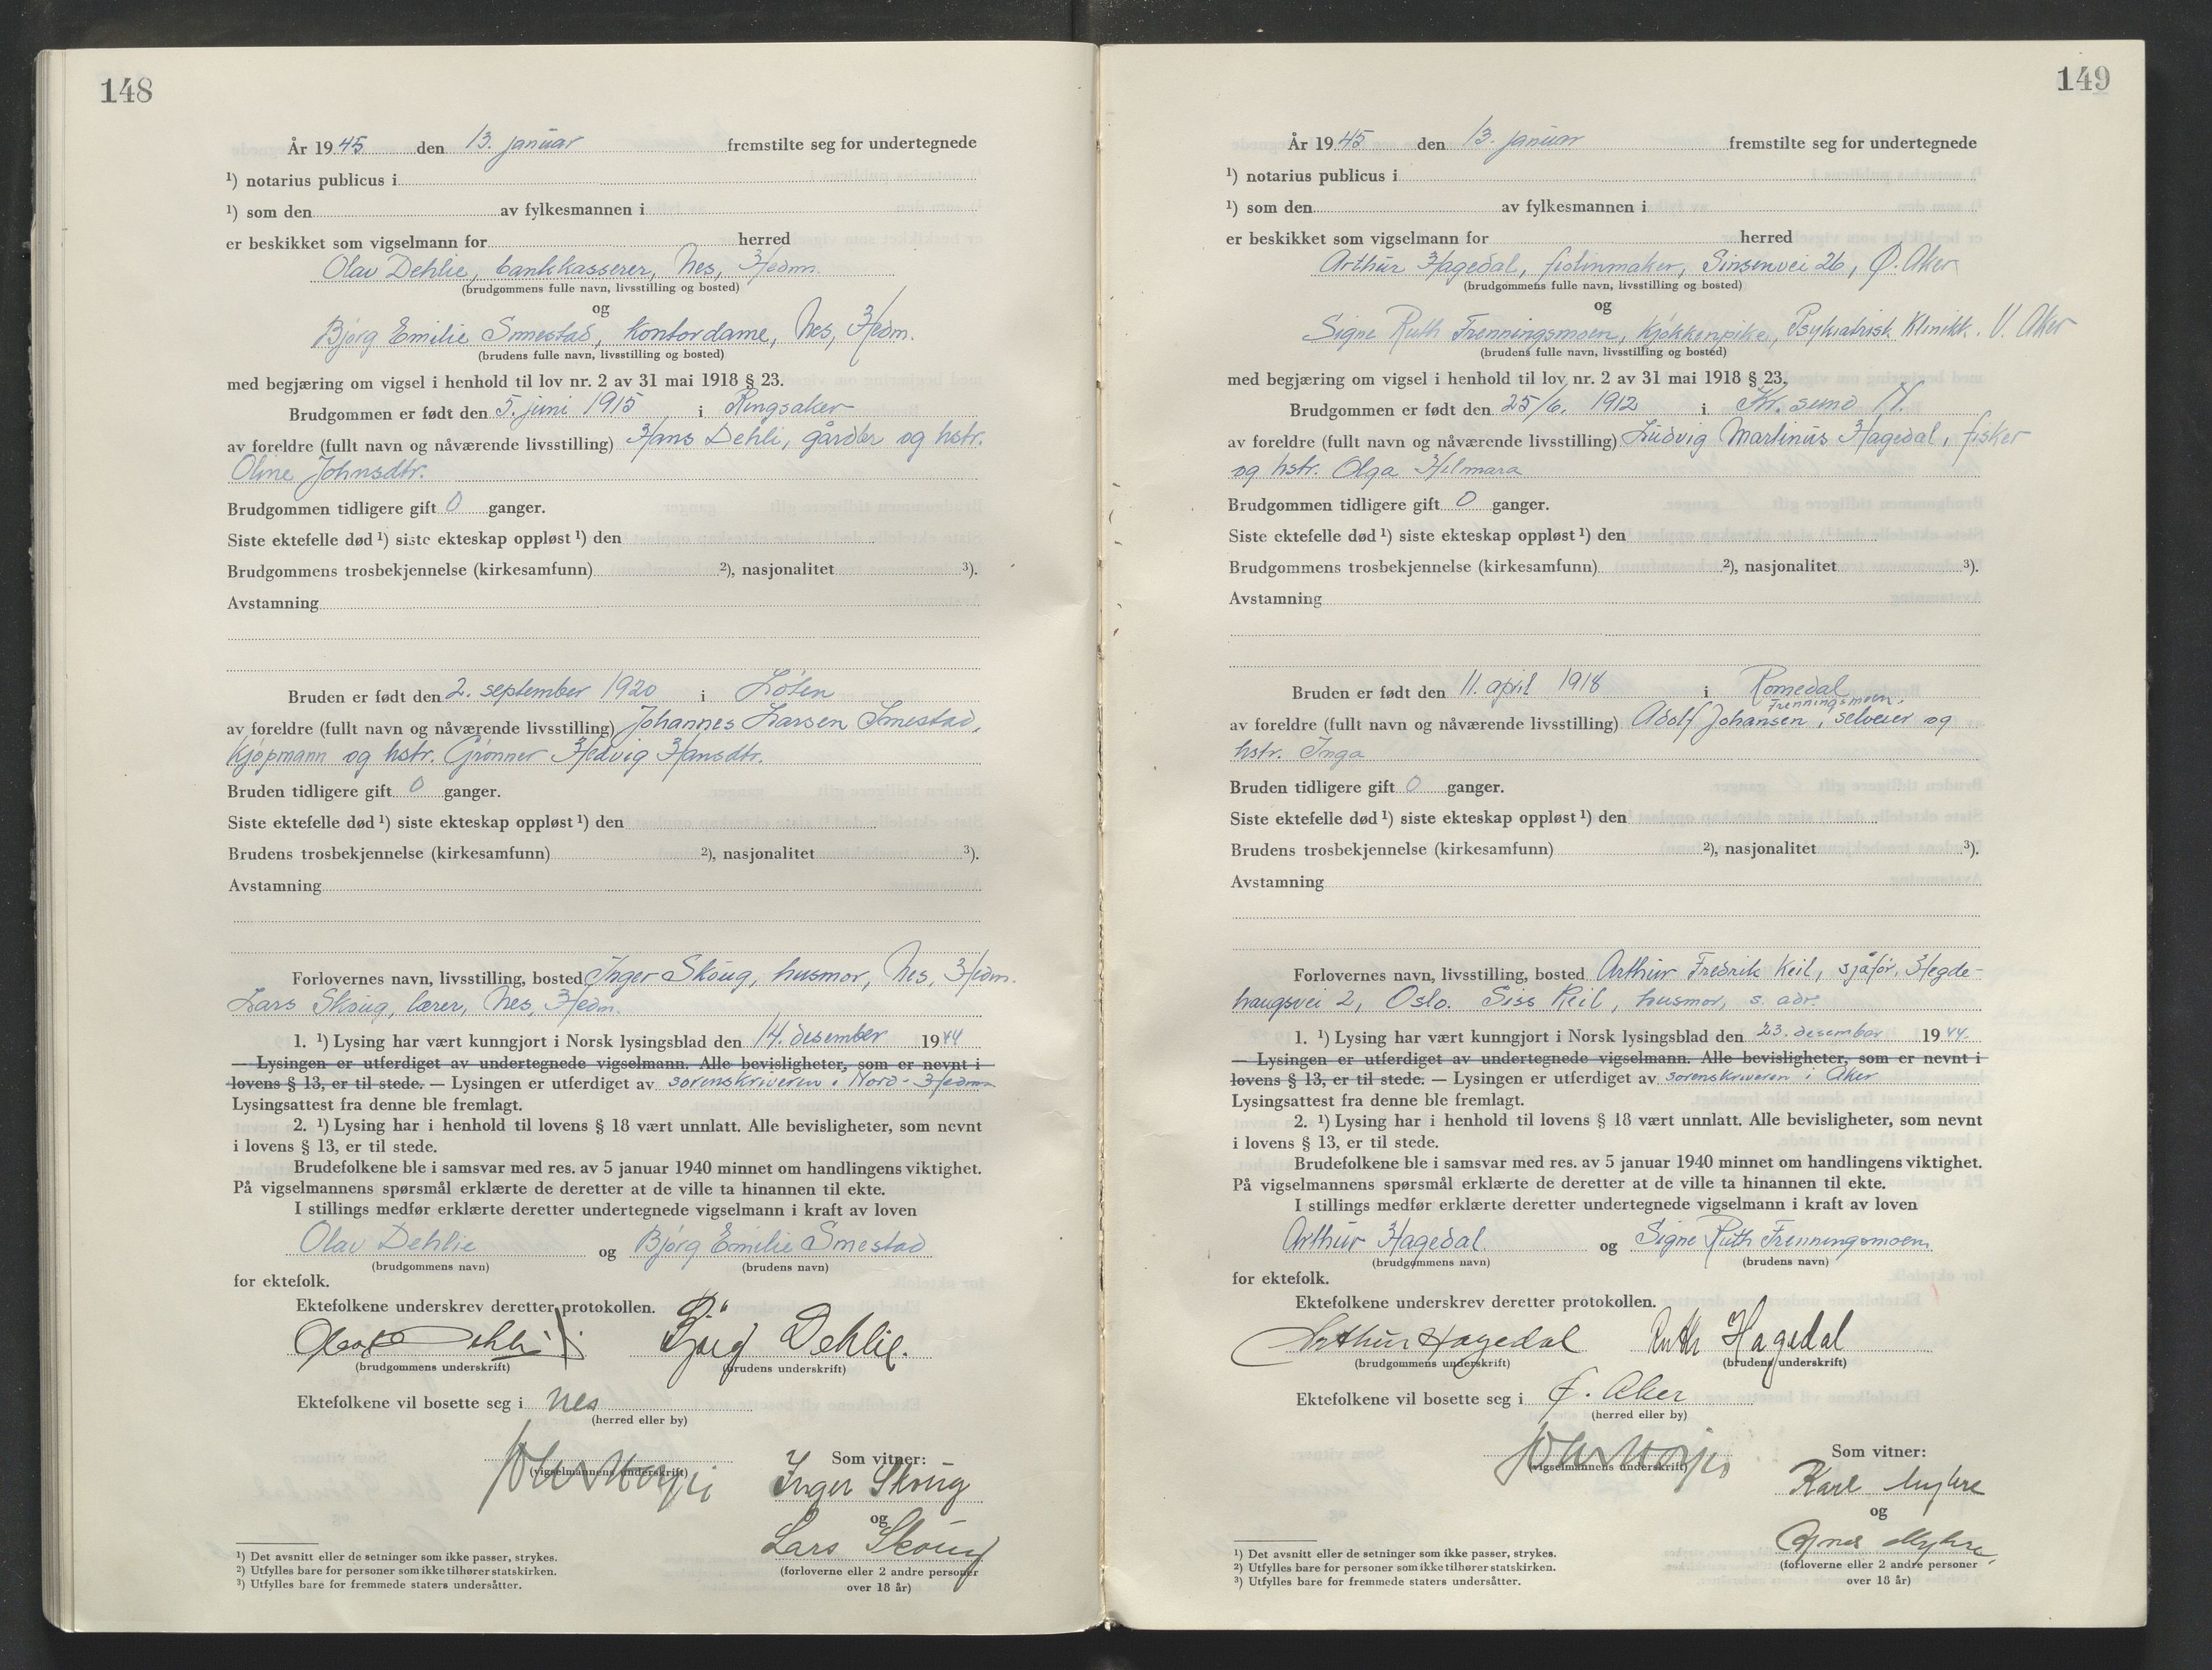 148
År 1945 den 13. januar fremstilte seg for undertegnede
¹) notarius publicus i
¹) som den av fylkesmannen i
er beskikket som vigselmann for herred
Olav Dehlie, bankkasserer, Nes, Hedm.
(brudgommens fulle navn, livsstilling og bosted)
og
Bjørg Emilie Smestad, kontordame, Nes, Hedm.
(brudens fulle navn, livsstilling og bosted)
med begjæring om vigsel i henhold til lov nr. 2 av 31 mai 1918 § 23.
Brudgommen er født den 5. juni 1915 i Ringsaker
av foreldre (fullt navn og nåværende livsstilling) Hans Dehli, gårdbr og hstr.
Oline Johnsdtr.
Brudgommen tidligere gift 0 ganger.
Siste ektefelle død¹) siste ekteskap oppløst¹) den
Brudgommens trosbekjennelse (kirkesamfunn) ²), nasjonalitet ³).
Avstamning
Bruden er født den 2. september 1920 i Løten
av foreldre (fullt navn og nåværende livsstilling) Johannes Larsen Smestad,
kjøpmann og hstr. Grønner Hedvig Hansdtr.
Bruden tidligere gift 0 ganger.
Siste ektefelle død¹) siste ekteskap oppløst¹) den
Brudens trosbekjennelse (kirkesamfunn) ²), nasjonalitet ³).
Avstamning
Forlovernes navn, livsstilling, bosted Inger Skoug, husmor, Nes, Hedm.
Lars Skoug, lærer, Nes, Hedm.
1. ¹) Lysing har vært kunngjort i Norsk lysingsblad den 14. desember 1944
— Lysingen er utferdiget av undertegnede vigselmann. Alle bevisligheter, som er nevnt i
lovens § 13, er til stede. — Lysingen er utferdiget av sorenskriveren i Nord-Hedm
Lysingsattest fra denne ble fremlagt.
2. ¹) Lysing har i henhold til lovens § 18 vært unnlatt. Alle bevisligheter, som nevnt
i lovens § 13, er til stede.
Brudefolkene ble i samsvar med res. av 5 januar 1940 minnet om handlingens viktighet.
På vigselmannens spørsmål erklærte de deretter at de ville ta hinannen til ekte.
I stillings medfør erklærte deretter undertegnede vigselmann i kraft av loven
Olav Dehlie og Bjørg Emilie Smestad
(brudgommens navn) (brudens navn)
for ektefolk.
Ektefolkene underskrev deretter protokollen.
Olav Dehli Bjørg Dehlie.
(brudgommens underskrift) (brudens underskrift)
Ektefolkene vil bosette seg i Nes
(herred eller by)
Som vitner:
(vigselmannens underskrift) Inger Skoug
og
Lars Skoug
(forloverne eller 2 andre personer
over 18 år)
¹) Det avsnitt eller de setninger som ikke passer, strykes.
²) Utfylles bare for personer som ikke tilhører statskirken.
³) Utfylles bare for fremmede staters undersåtter.
149
År 1945 den 13. januar fremstilte seg for undertegnede
¹) notarius publicus i
¹) som den av fylkesmannen i
er beskikket som vigselmann for herred
Arthur Hagedal, fiolinmaker, Sinsenvei 26, Ø. Aker
(brudgommens fulle navn, livsstilling og bosted)
og
Signe Ruth Frenningsmoen, kjøkkenpike, Psykiatrisk Klinikk. V. Aker
(brudens fulle navn, livsstilling og bosted)
med begjæring om vigsel i henhold til lov nr. 2 av 31 mai 1918 § 23.
Brudgommen er født den 25/6. 1912 i Kr. sund N.
av foreldre (fullt navn og nåværende livsstilling) Ludvig Martinus Hagedal, fisker
og hstr. Olga Hilmara
Brudgommen tidligere gift 0 ganger.
Siste ektefelle død¹) siste ekteskap oppløst¹) den
Brudgommens trosbekjennelse (kirkesamfunn) ²), nasjonalitet ³).
Avstamning
Bruden er født den 11. april 1918 i Romedal
Frenningsmoen,
av foreldre (fullt navn og nåværende livsstilling) Adolf Johansen, selveier og
hstr. Inga
Bruden tidligere gift 0 ganger.
Siste ektefelle død¹) siste ekteskap oppløst¹) den
Brudens trosbekjennelse (kirkesamfunn) ²), nasjonalitet ³).
Avstamning
Forlovernes navn, livsstilling, bosted Arthur Fredrik Keil, sjåfør, Hegde-
haugsvei 2, Oslo. Siss Keil, husmor, s. adr.
1. ¹) Lysing har vært kunngjort i Norsk lysingsblad den 23. desember 1944.
— Lysingen er utferdiget av undertegnede vigselmann. Alle bevisligheter, som er nevnt i
lovens § 13, er til stede. — Lysingen er utferdiget av sorenskriveren i Aker
Lysingsattest fra denne ble fremlagt.
2. ¹) Lysing har i henhold til lovens § 18 vært unnlatt. Alle bevisligheter, som nevnt
i lovens § 13, er til stede.
Brudefolkene ble i samsvar med res. av 5 januar 1940 minnet om handlingens viktighet.
På vigselmannens spørsmål erklærte de deretter at de ville ta hinannen til ekte.
I stillings medfør erklærte deretter undertegnede vigselmann i kraft av loven
Arthur Hagedal og Signe Ruth Frenningsmoen
(brudgommens navn) (brudens navn)
for ektefolk.
Ektefolkene underskrev deretter protokollen.
Arthur Hagedal Ruth Hagedal
(brudgommens underskrift) (brudens underskrift)
Ektefolkene vil bosette seg i Ø. Aker
(herred eller by)
Som vitner:
(vigselmannens underskrift) Karl Myhre
og
Agnes Myhre
(forloverne eller 2 andre personer
over 18 år)
¹) Det avsnitt eller de setninger som ikke passer, strykes.
²) Utfylles bare for personer som ikke tilhører statskirken.
³) Utfylles bare for fremmede staters undersåtter.